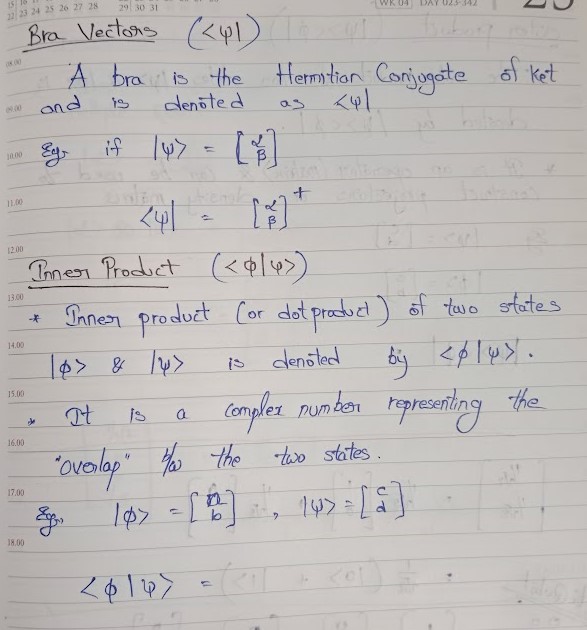 22 23 24 25 26 27 28 29 30 31
WK 04 DAY 023-342
Bra Vectors (<ψ|)
08.00
A bra is the Hermitian Conjugate of ket
09.00 and is denoted as <ψ|
10.00 Eg, if |ψ> = [α β]
11.00
<ψ| = [α β]†
12.00
Inner Product (<φ|ψ>)
13.00
* Inner product (or dot product) of two states
14.00
|φ> & |ψ> is denoted by <φ|ψ>.
15.00
* It is a complex number representing the
16.00
"overlap" b/w the two states.
17.00
Eg, |φ> = [a b] , |ψ> = [c d]
18.00
<φ|ψ> =